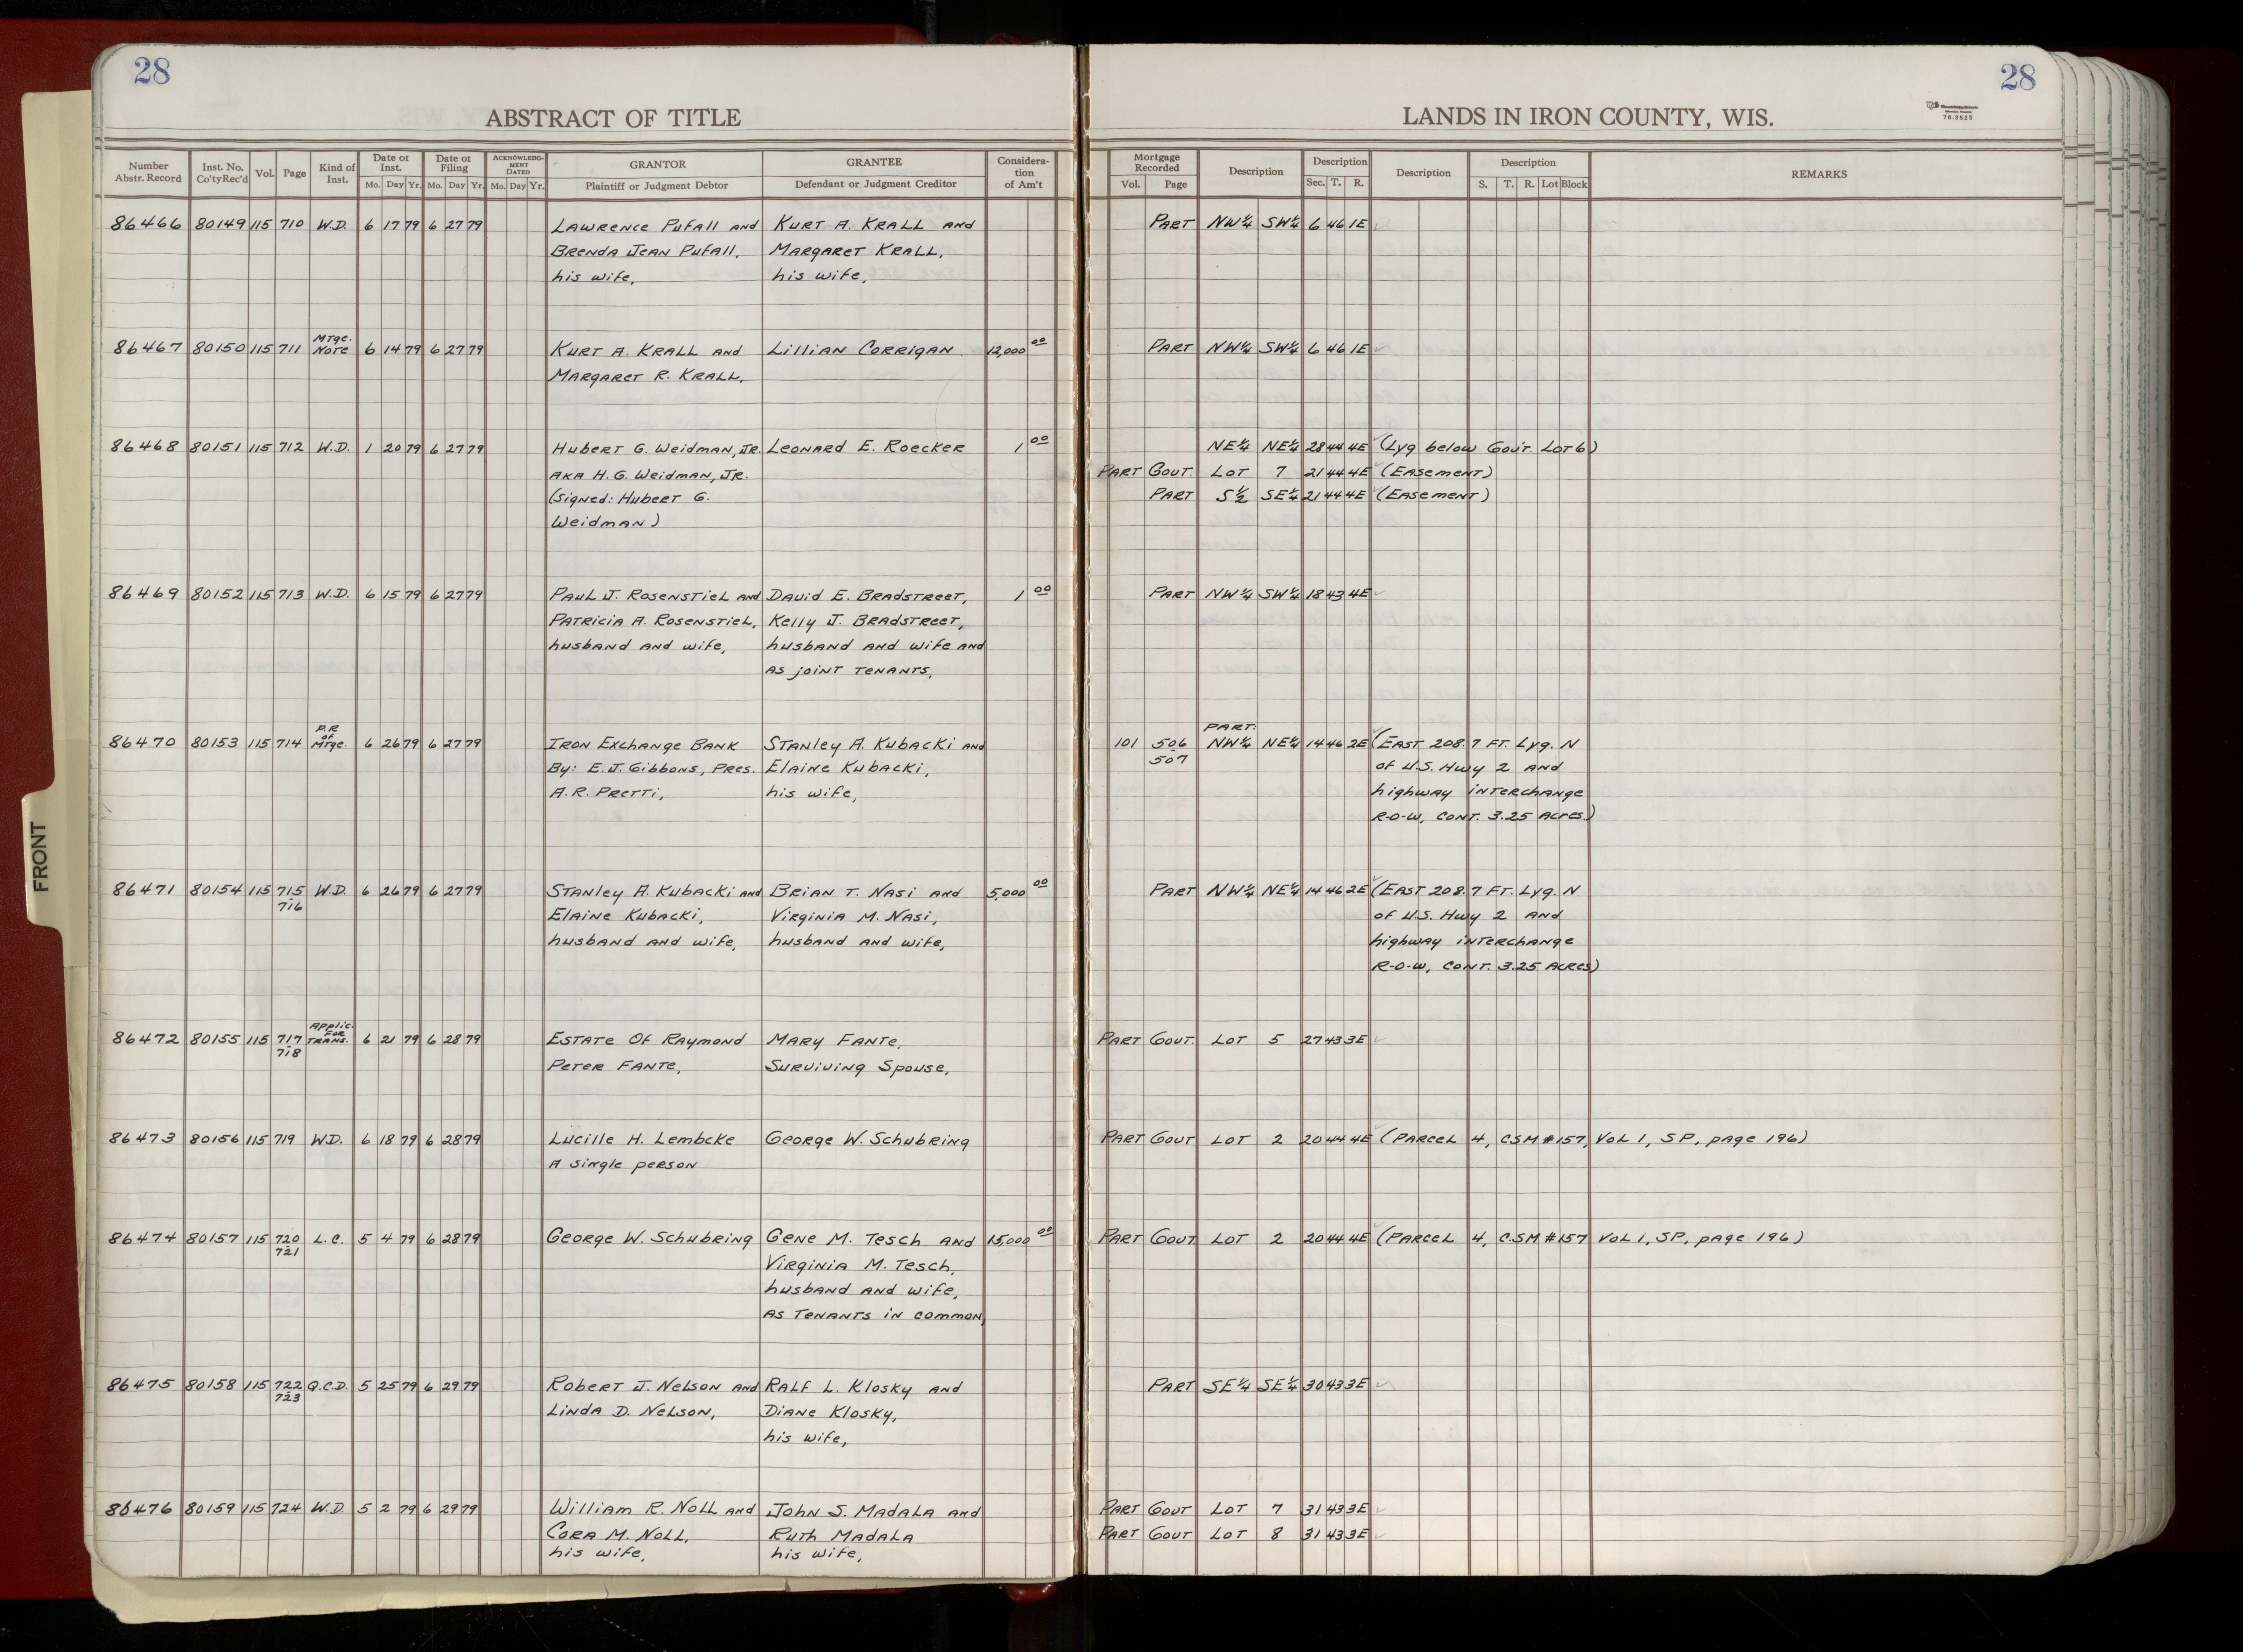 28
28
ABSTRACT OF TITLE
LANDS IN IRON COUNTY, WIS.
78-3525
Number Abstr. Record Inst. No. Co'ty Rec'd Vol. Page Kind of Inst. Date of Inst. Mo. Day Yr. Date of Filing Mo. Day Yr. ACKNOWLEDGMENT DATED Mo. Day Yr. GRANTOR Plaintiff or Judgment Debtor GRANTEE Defendant or Judgment Creditor Consideration of Am't Mortgage Recorded Vol. Page Description Description Sec. T. R. Description Description S. T. R. Lot Block REMARKS
86466 80149 115 710 W.D. 6 17 79 6 27 79 Lawrence Pufall and Kurt A. Krall and Part NW¼ SW¼ 6 46 1E
Brenda Jean Pufall, Margaret Krall,
his wife, his wife,
86467 80150 115 711 Mtge. Note 6 14 79 6 27 79 Kurt A. Krall and Lillian Corrigan 12,000 00 Part NW¼ SW¼ 6 46 1E
Margaret R. Krall,
86468 80151 115 712 W.D. 1 20 79 6 27 79 Hubert G. Weidman, Jr. Leonard E. Roecker 1 00 NE¼ NE¼ 28 44 4E (Lyg below Gov't. Lot 6)
AKA H. G. Weidman, Jr. Part Gout. Lot 7 21 44 4E (Easement)
(Signed: Hubert G. Part S½ SE¼ 21 44 4E (Easement)
Weidman)
86469 80152 115 713 W.D. 6 15 79 6 27 79 Paul J. Rosenstiel and David E. Bradstreet, 1 00 Part NW¼ SW¼ 18 43 4E
Patricia A. Rosenstiel, Kelly J. Bradstreet,
husband and wife, husband and wife and
as joint tenants,
86470 80153 115 714 P.R of Mtge. 6 26 79 6 27 79 Iron Exchange Bank Stanley A. Kubacki and 101 506 - 507 Part: NW¼ NE¼ 14 46 2E (East 208.7 Ft. Lyg. N
By: E. J. Gibbons, Pres. Elaine Kubacki, of U.S. Hwy 2 and
A. R. Pretti, his wife, highway interchange
R-O-W, Cont. 3.25 Acres)
86471 80154 115 715 - 716 W.D. 6 26 79 6 27 79 Stanley A. Kubacki and Brian T. Nasi and 5,000 00 Part NW¼ NE¼ 14 46 2E (East 208.7 Ft. Lyg. N
Elaine Kubacki, Virginia M. Nasi, of U.S. Hwy 2 and
husband and wife, husband and wife, highway interchange
R-O-W, Cont. 3.25 Acres)
86472 80155 115 717 - 718 Applic. For Trans. 6 21 79 6 28 79 Estate Of Raymond Mary Fante, Part Gout. Lot 5 27 43 3E
Peter Fante, Surviving Spouse,
86473 80156 115 719 W.D. 6 18 79 6 28 79 Lucille H. Lembcke George W. Schubring Part Gout Lot 2 20 44 4E (Parcel 4, CSM #157, Vol 1, SP, page 196)
A single person
86474 80157 115 720 - 721 L.C. 5 4 79 6 28 79 George W. Schubring Gene M. Tesch and 15,000 00 Part Gout Lot 2 20 44 4E (Parcel 4, CSM #157 Vol 1, SP, page 196)
Virginia M. Tesch,
husband and wife,
as tenants in common,
86475 80158 115 722 - 723 Q.C.D. 5 25 79 6 29 79 Robert J. Nelson and Ralf L. Klosky and Part SE¼ SE¼ 30 43 3E
Linda D. Nelson, Diane Klosky,
his wife,
86476 80159 115 724 W.D. 5 2 79 6 29 79 William R. Noll and John S. Madala and Part Gout Lot 7 31 43 3E
Cora M. Noll, Ruth Madala Part Gout Lot 8 31 43 3E
his wife, his wife,
FRONT